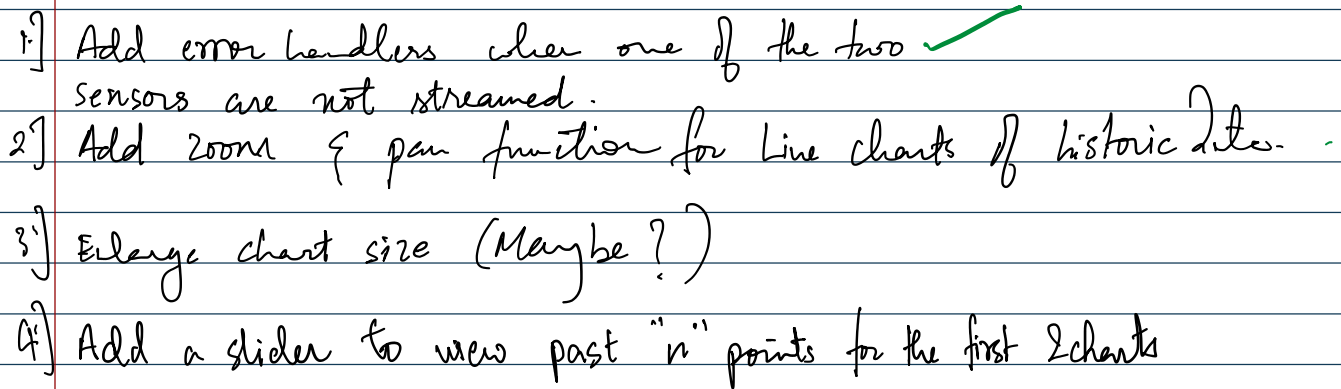 1.] Add error handlers when one of the two
sensors are not streamed.
2] Add zoom & pan function for Line charts of historic data.
3.] Enlarge chart size (Maybe?)
4.] Add a slider to view past "n" points for the first 2 charts